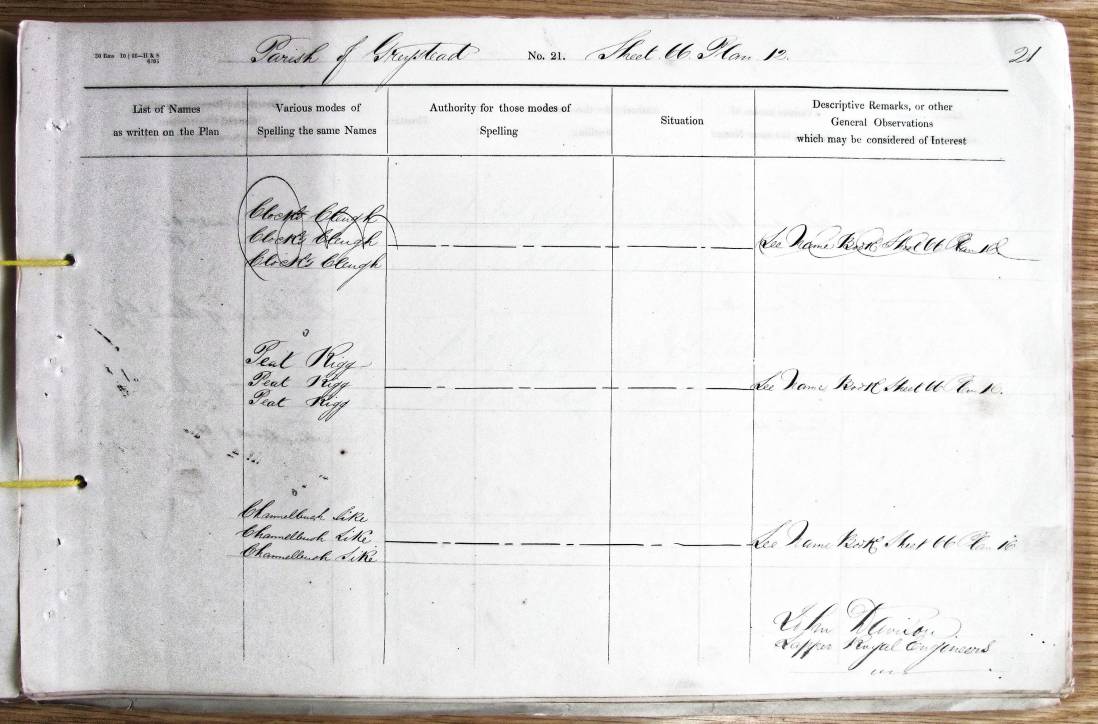 Parish of Greystead No. 21. Sheet 66 Plan 12. 21
List of Names
as written on the Plan
Various modes of
Spelling the same Names
Authority for those modes of
Spelling
Situation
Descriptive Remarks, or other
General Observations
which may be considered of Interest
Clock's Cleugh
Clock's Cleugh
Clock's Cleugh
See Name Book Sheet 66 Plan
Peat Rigg
Peat Rigg
Peat Rigg
See Name Book Sheet 66 Plan 16.
Channelbush Sike
Channelbush Sike
Channelbush Sike
See Name Book Sheet 66 Plan 16
John Davison
Sapper Royal Engineers